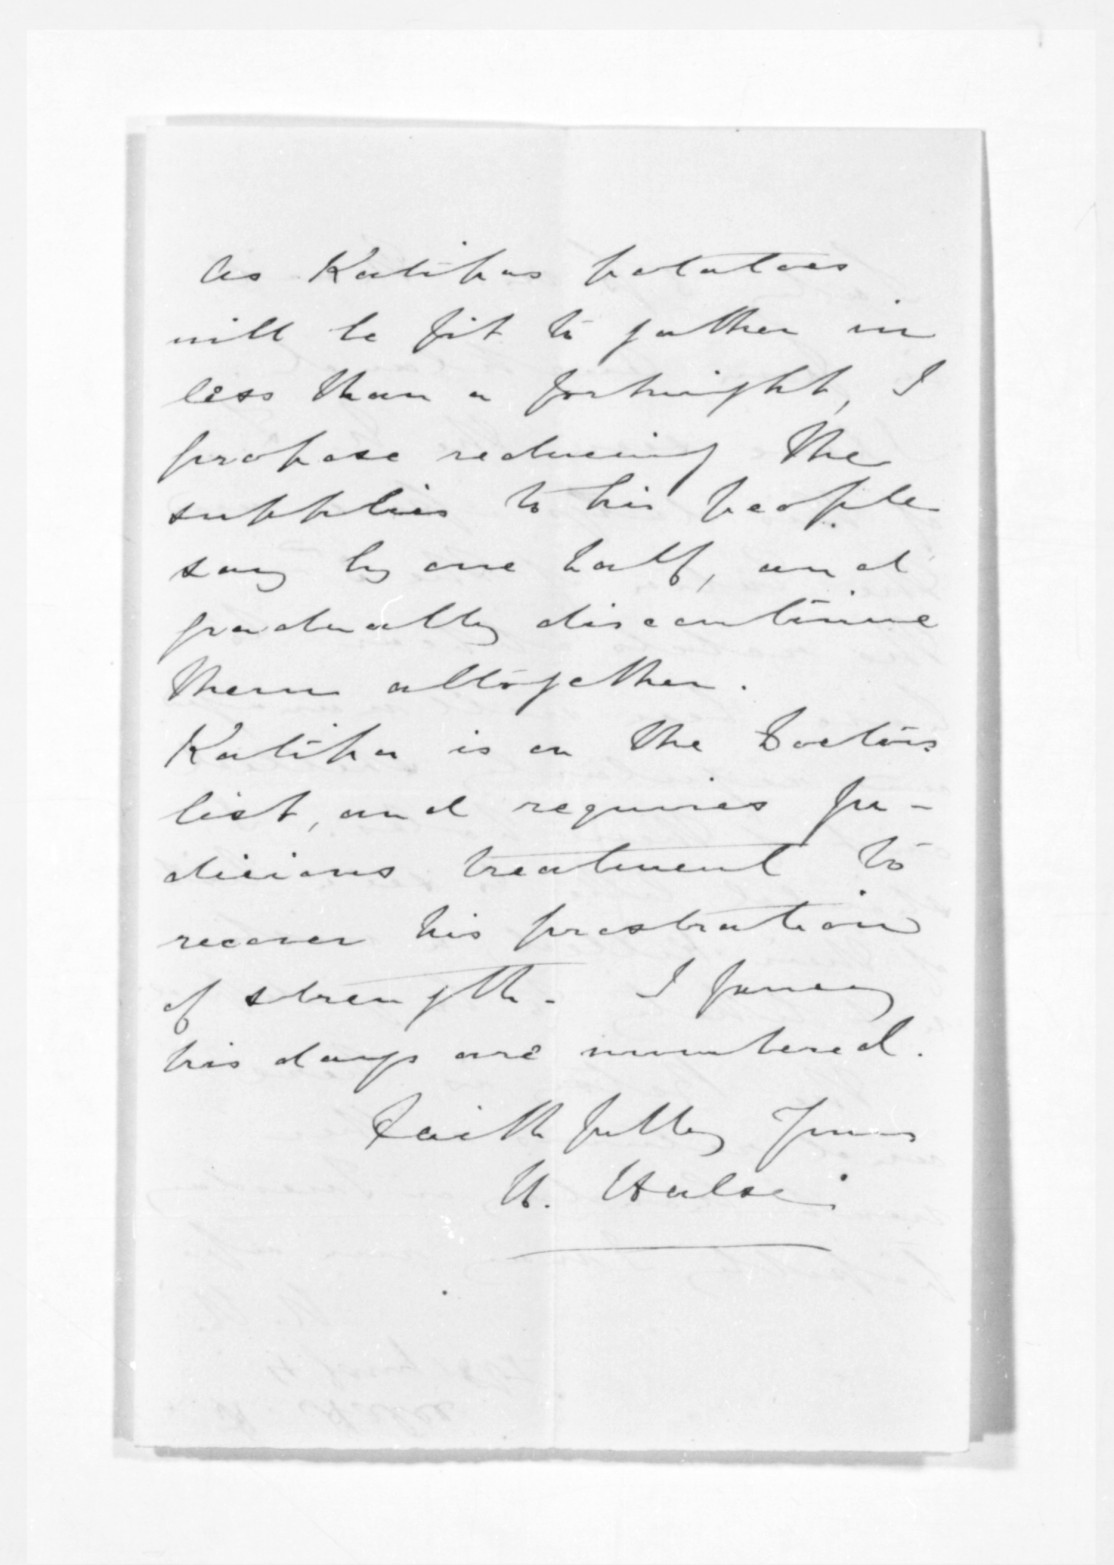 As Katipas potatoes
will be fit to gather in
less than a fortnight, I
propose reducing the
supplies to his people
say by one half, and
gradually discontinue
them altogether.
Katipa is on the Doctors
list, and requires ju-
dicious treatment to
recover his prostration
of strength. I fancy
his days are numbered.
Faithfully Yours
W. Halse